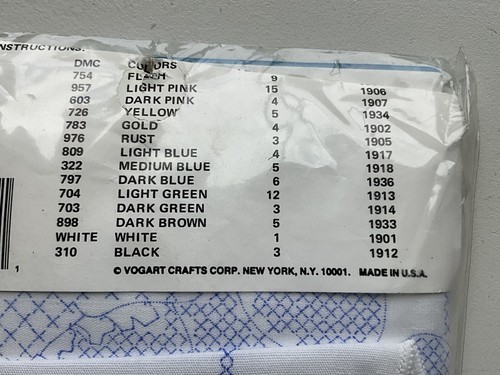 NSTRUCTIONS:
DMC COLORS
754 FLESH 9
957 LIGHT PINK 15 1906
603 DARK PINK 4 1907
726 YELLOW 5 1934
783 GOLD 4 1902
976 RUST 3 1905
809 LIGHT BLUE 4 1917
322 MEDIUM BLUE 5 1918
797 DARK BLUE 6 1936
704 LIGHT GREEN 12 1913
703 DARK GREEN 3 1914
898 DARK BROWN 5 1933
WHITE WHITE 1 1901
310 BLACK 3 1912
© VOGART CRAFTS CORP. NEW YORK, N.Y. 10001. MADE IN U.S.A.
1